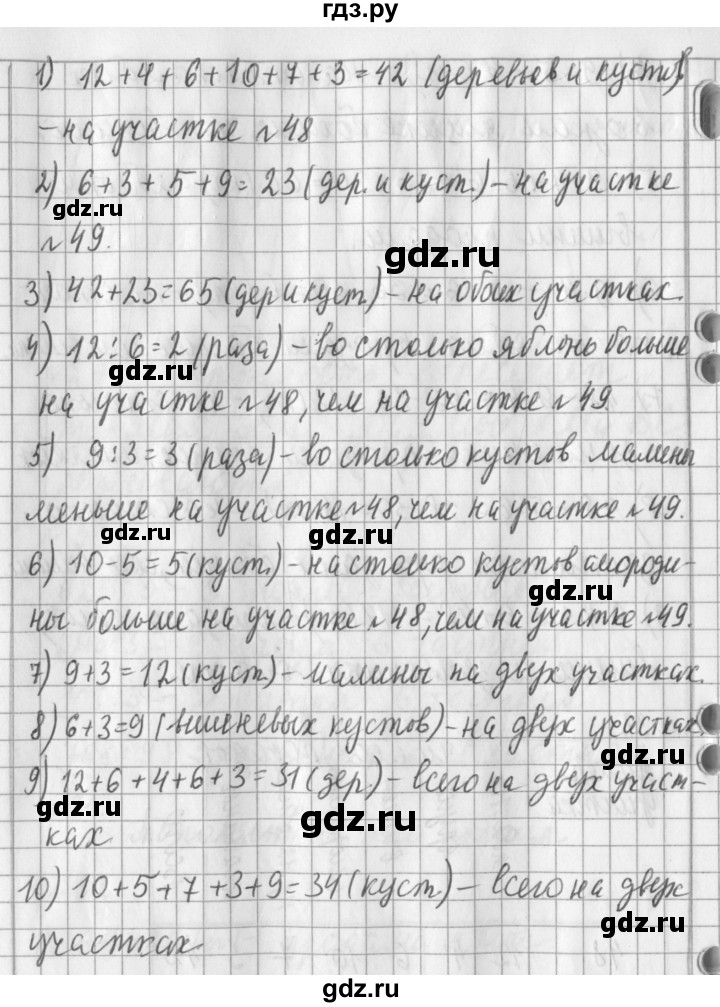 гдз.ру
1) 12+4+6+10+7+3=42 (деревьев и куст.)
- на участке №48
2) 6+3+5+9=23 (дер. и куст.) - на участке
gdz.ru
№49.
gdz.ru
3) 42+23=65 (дер и куст) - на обоих участках.
4) 12:6=2 (раза) - во столько яблонь больше
gdz.ru
на участке №48, чем на участке №49.
5) 9:3=3 (раза) - во столько кустов малины
меньше на участке №48, чем на участке №49.
gdz.ru gdz.ru
6) 10-5=5 (куст.) - на столко кустов смороди-
gdz.ru
ны больше на участке №48, чем на участке №49.
7) 9+3=12 (куст) - малины на двух участках.
8) 6+3=9 (вишневых кустов) - на двух участках
gdz.ru
9) 12+6+4+6+3=31 (дер) - всего на двух участ-
gdz.ru gdz.ru
ках
10) 10+5+7+3+9=34 (куст) - всего на двух
gdz.ru
участках.